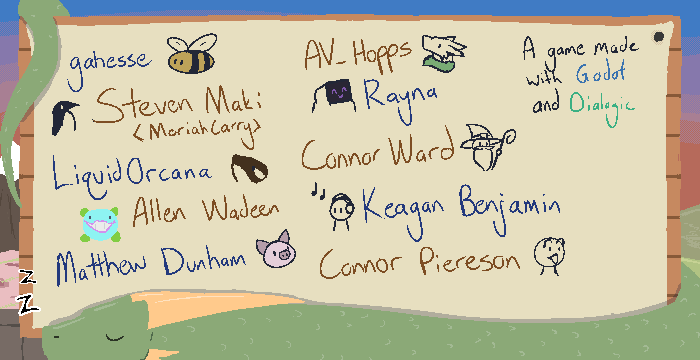 gahesse
Steven Maki
<MoriahCarry>
LiquidOrcana
Allen Wadeen
Matthew Dunham
AV_Hopps
Rayna
Connor Ward
Keagan Benjamin
Connor Piereson
A game made
with Godot
and Dialogic
z
z